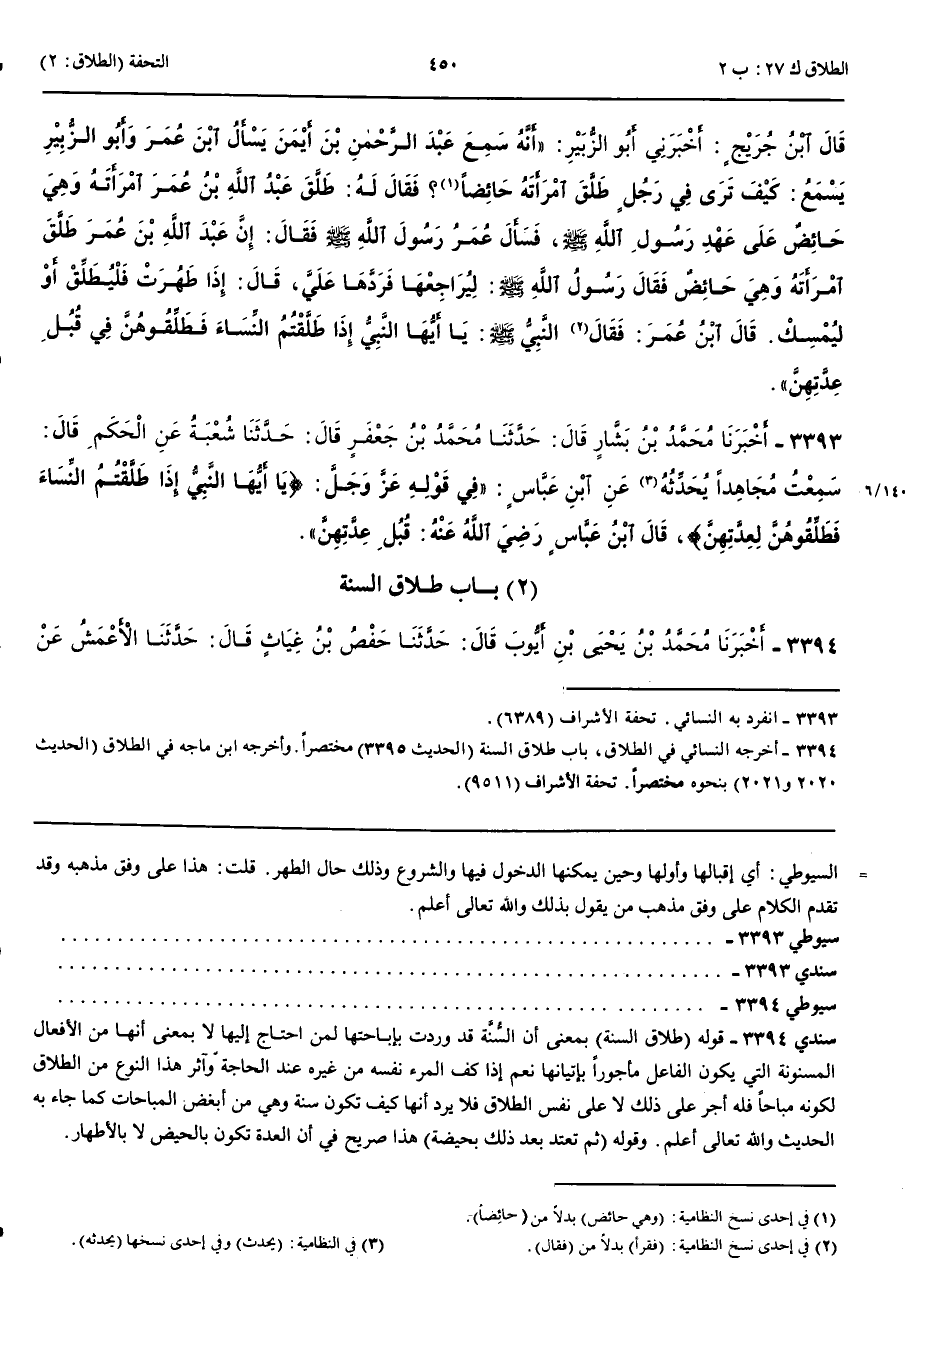 الطلاق ك ٢٧: ب ٢ ٤٥٠ التحفة (الطلاق: ٢)
قَالَ ٱبْنُ جُرَيْجٍ: أَخْبَرَنِي أَبُو الزُّبَيْرِ: «أَنَّهُ سَمِعَ عَبْدَ الرَّحْمٰنِ بْنَ أَيْمَنَ يَسْأَلُ ٱبْنَ عُمَرَ وَأَبُو الزُّبَيْرِ
يَسْمَعُ: كَيْفَ تَرَى فِي رَجُلٍ طَلَّقَ ٱمْرَأَتَهُ حَائِضاً(١)؟ فَقَالَ لَهُ: طَلَّقَ عَبْدُ ٱللَّهِ بْنُ عُمَرَ ٱمْرَأَتَهُ وَهِيَ
حَائِضٌ عَلَى عَهْدِ رَسُولِ ٱللَّهِ ﷺ، فَسَأَلَ عُمَرُ رَسُولَ ٱللَّهِ ﷺ فَقَالَ: إِنَّ عَبْدَ ٱللَّهِ بْنَ عُمَرَ طَلَّقَ
ٱمْرَأَتَهُ وَهِيَ حَائِضٌ فَقَالَ رَسُولُ ٱللَّهِ ﷺ: لِيُرَاجِعْهَا فَرَدَّهَا عَلَيَّ، قَالَ: إِذَا طَهُرَتْ فَلْيُطَلِّقْ أَوْ
لِيُمْسِكْ. قَالَ ٱبْنُ عُمَرَ: فَقَالَ(٢) النَّبِيُّ ﷺ: يَا أَيُّهَا النَّبِيُّ إِذَا طَلَّقْتُمُ النِّسَاءَ فَطَلِّقُوهُنَّ فِي قُبُلِ
عِدَّتِهِنَّ».
٣٣٩٣ - أَخْبَرَنَا مُحَمَّدُ بْنُ بَشَّارٍ قَالَ: حَدَّثَنَا مُحَمَّدُ بْنُ جَعْفَرٍ قَالَ: حَدَّثَنَا شُعْبَةُ عَنِ الْحَكَمِ قَالَ:
٦/١٤٠ سَمِعْتُ مُجَاهِداً يُحَدِّثُهُ(٣) عَنِ ٱبْنِ عَبَّاسٍ: «فِي قَوْلِهِ عَزَّ وَجَلَّ: ﴿يَا أَيُّهَا النَّبِيُّ إِذَا طَلَّقْتُمُ النِّسَاءَ
فَطَلِّقُوهُنَّ لِعِدَّتِهِنَّ﴾، قَالَ ٱبْنُ عَبَّاسٍ رَضِيَ ٱللَّهُ عَنْهُ: قُبُلِ عِدَّتِهِنَّ».
(٢) باب طلاق السنة
٣٣٩٤ - أَخْبَرَنَا مُحَمَّدُ بْنُ يَحْيَى بْنِ أَيُّوبَ قَالَ: حَدَّثَنَا حَفْصُ بْنُ غِيَاثٍ قَالَ: حَدَّثَنَا الْأَعْمَشُ عَنْ
٣٣٩٣ - انفرد به النسائي. تحفة الأشراف (٦٣٨٩).
٣٣٩٤ - أخرجه النسائي في الطلاق، باب طلاق السنة (الحديث ٣٣٩٥) مختصراً. وأخرجه ابن ماجه في الطلاق (الحديث
٢٠٢٠ و٢٠٢١) بنحوه مختصراً. تحفة الأشراف (٩٥١١).
= السيوطي: أي إقبالها وأولها وحين يمكنها الدخول فيها والشروع وذلك حال الطهر. قلت: هذا على وفق مذهبه وقد
تقدم الكلام على وفق مذهب من يقول بذلك والله تعالى أعلم.
سيوطي ٣٣٩٣ - ........................................................
سندي ٣٣٩٣ - ........................................................
سيوطي ٣٣٩٤ - ........................................................
سندي ٣٣٩٤ - قوله (طلاق السنة) بمعنى أن السُّنَّة قد وردت بإباحتها لمن احتاج إليها لا بمعنى أنها من الأفعال
المسنونة التي يكون الفاعل مأجوراً بإتيانها نعم إذا كف المرء نفسه من غيره عند الحاجة وآثر هذا النوع من الطلاق
لكونه مباحاً فله أجر على ذلك لا على نفس الطلاق فلا يرد أنها كيف تكون سنة وهي من أبغض المباحات كما جاء به
الحديث والله تعالى أعلم. وقوله (ثم تعتد بعد ذلك بحيضة) هذا صريح في أن العدة تكون بالحيض لا بالأطهار.
(١) في إحدى نسخ النظامية: (وهي حائض) بدلاً من (حائضاً).
(٢) في إحدى نسخ النظامية: (فقرأ) بدلاً من (فقال). (٣) في النظامية: (يحدث) وفي إحدى نسخها (يحدثه).